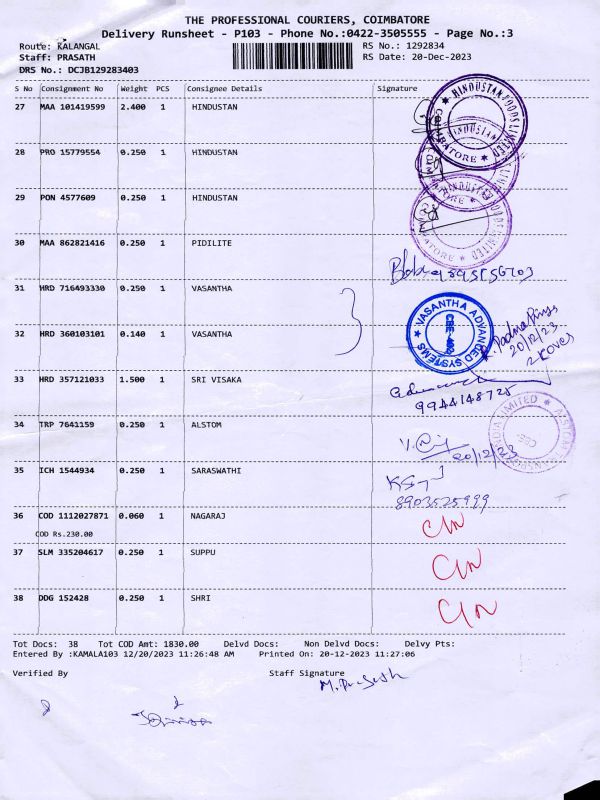 THE PROFESSIONAL COURIERS, COIMBATORE
Delivery Runsheet - P103 - Phone No.:0422-3505555 - Page No.:3
Route: KALANGAL RS No.: 1292834
Staff: PRASATH RS Date: 20-Dec-2023
DRS No.: DCJB129283403
S No Consignment No Weight PCS Consignee Details Signature
27 MAA 101419599 2.400 1 HINDUSTAN
HINDUSTAN FOODS LIMITED
COIMBATORE
28 PRO 15779554 0.250 1 HINDUSTAN
HINDUSTAN
29 PON 4577609 0.250 1 HINDUSTAN
HINDUSTAN FOODS LIMITED
COIMBATORE
30 MAA 862821416 0.250 1 PIDILITE
31 HRD 716493330 0.250 1 VASANTHA
VASANTHA ADVANCED SYSTEMS
32 HRD 360103101 0.140 1 VASANTHA
20/12/23
33 HRD 357121033 1.500 1 SRI VISAKA
9944148725
34 TRP 7641159 0.250 1 ALSTOM
20/12/23
35 ICH 1544934 0.250 1 SARASWATHI
8903525999
36 COD 1112027871 0.060 1 NAGARAJ
COD Rs.230.00
37 SLM 335204617 0.250 1 SUPPU
38 DDG 152428 0.250 1 SHRI
Tot Docs: 38 Tot COD Amt: 1830.00 Delvd Docs: Non Delvd Docs: Delvy Pts:
Entered By :KAMALA103 12/20/2023 11:26:48 AM Printed On: 20-12-2023 11:27:06
Verified By Staff Signature